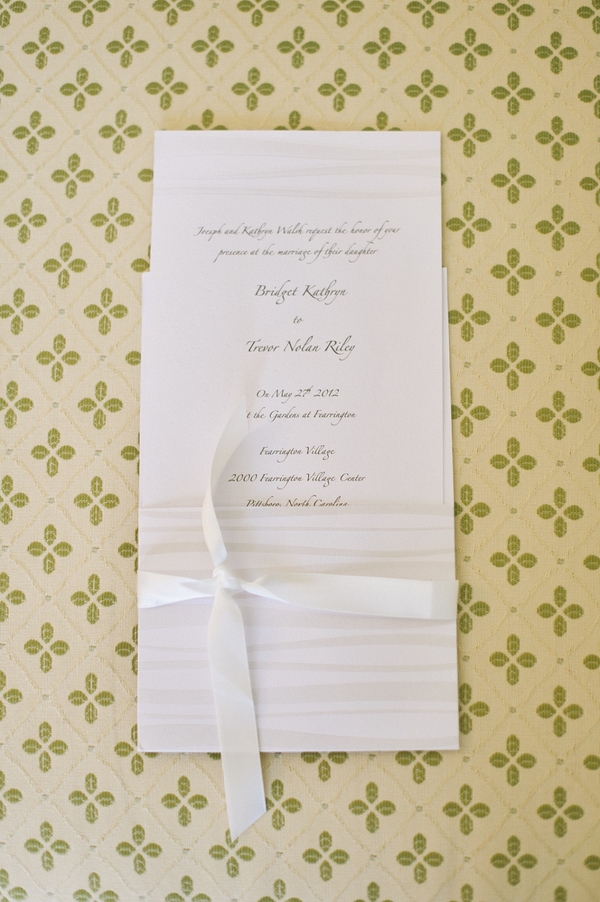 Joseph and Kathryn Walsh request the honor of your
presence at the marriage of their daughter
Bridget Kathryn
to
Trevor Nolan Riley
On May 27th 2012
t the Gardens at Fearrington
Fearrington Village
2000 Fearrington Village Center
Pittsboro, North Carolina